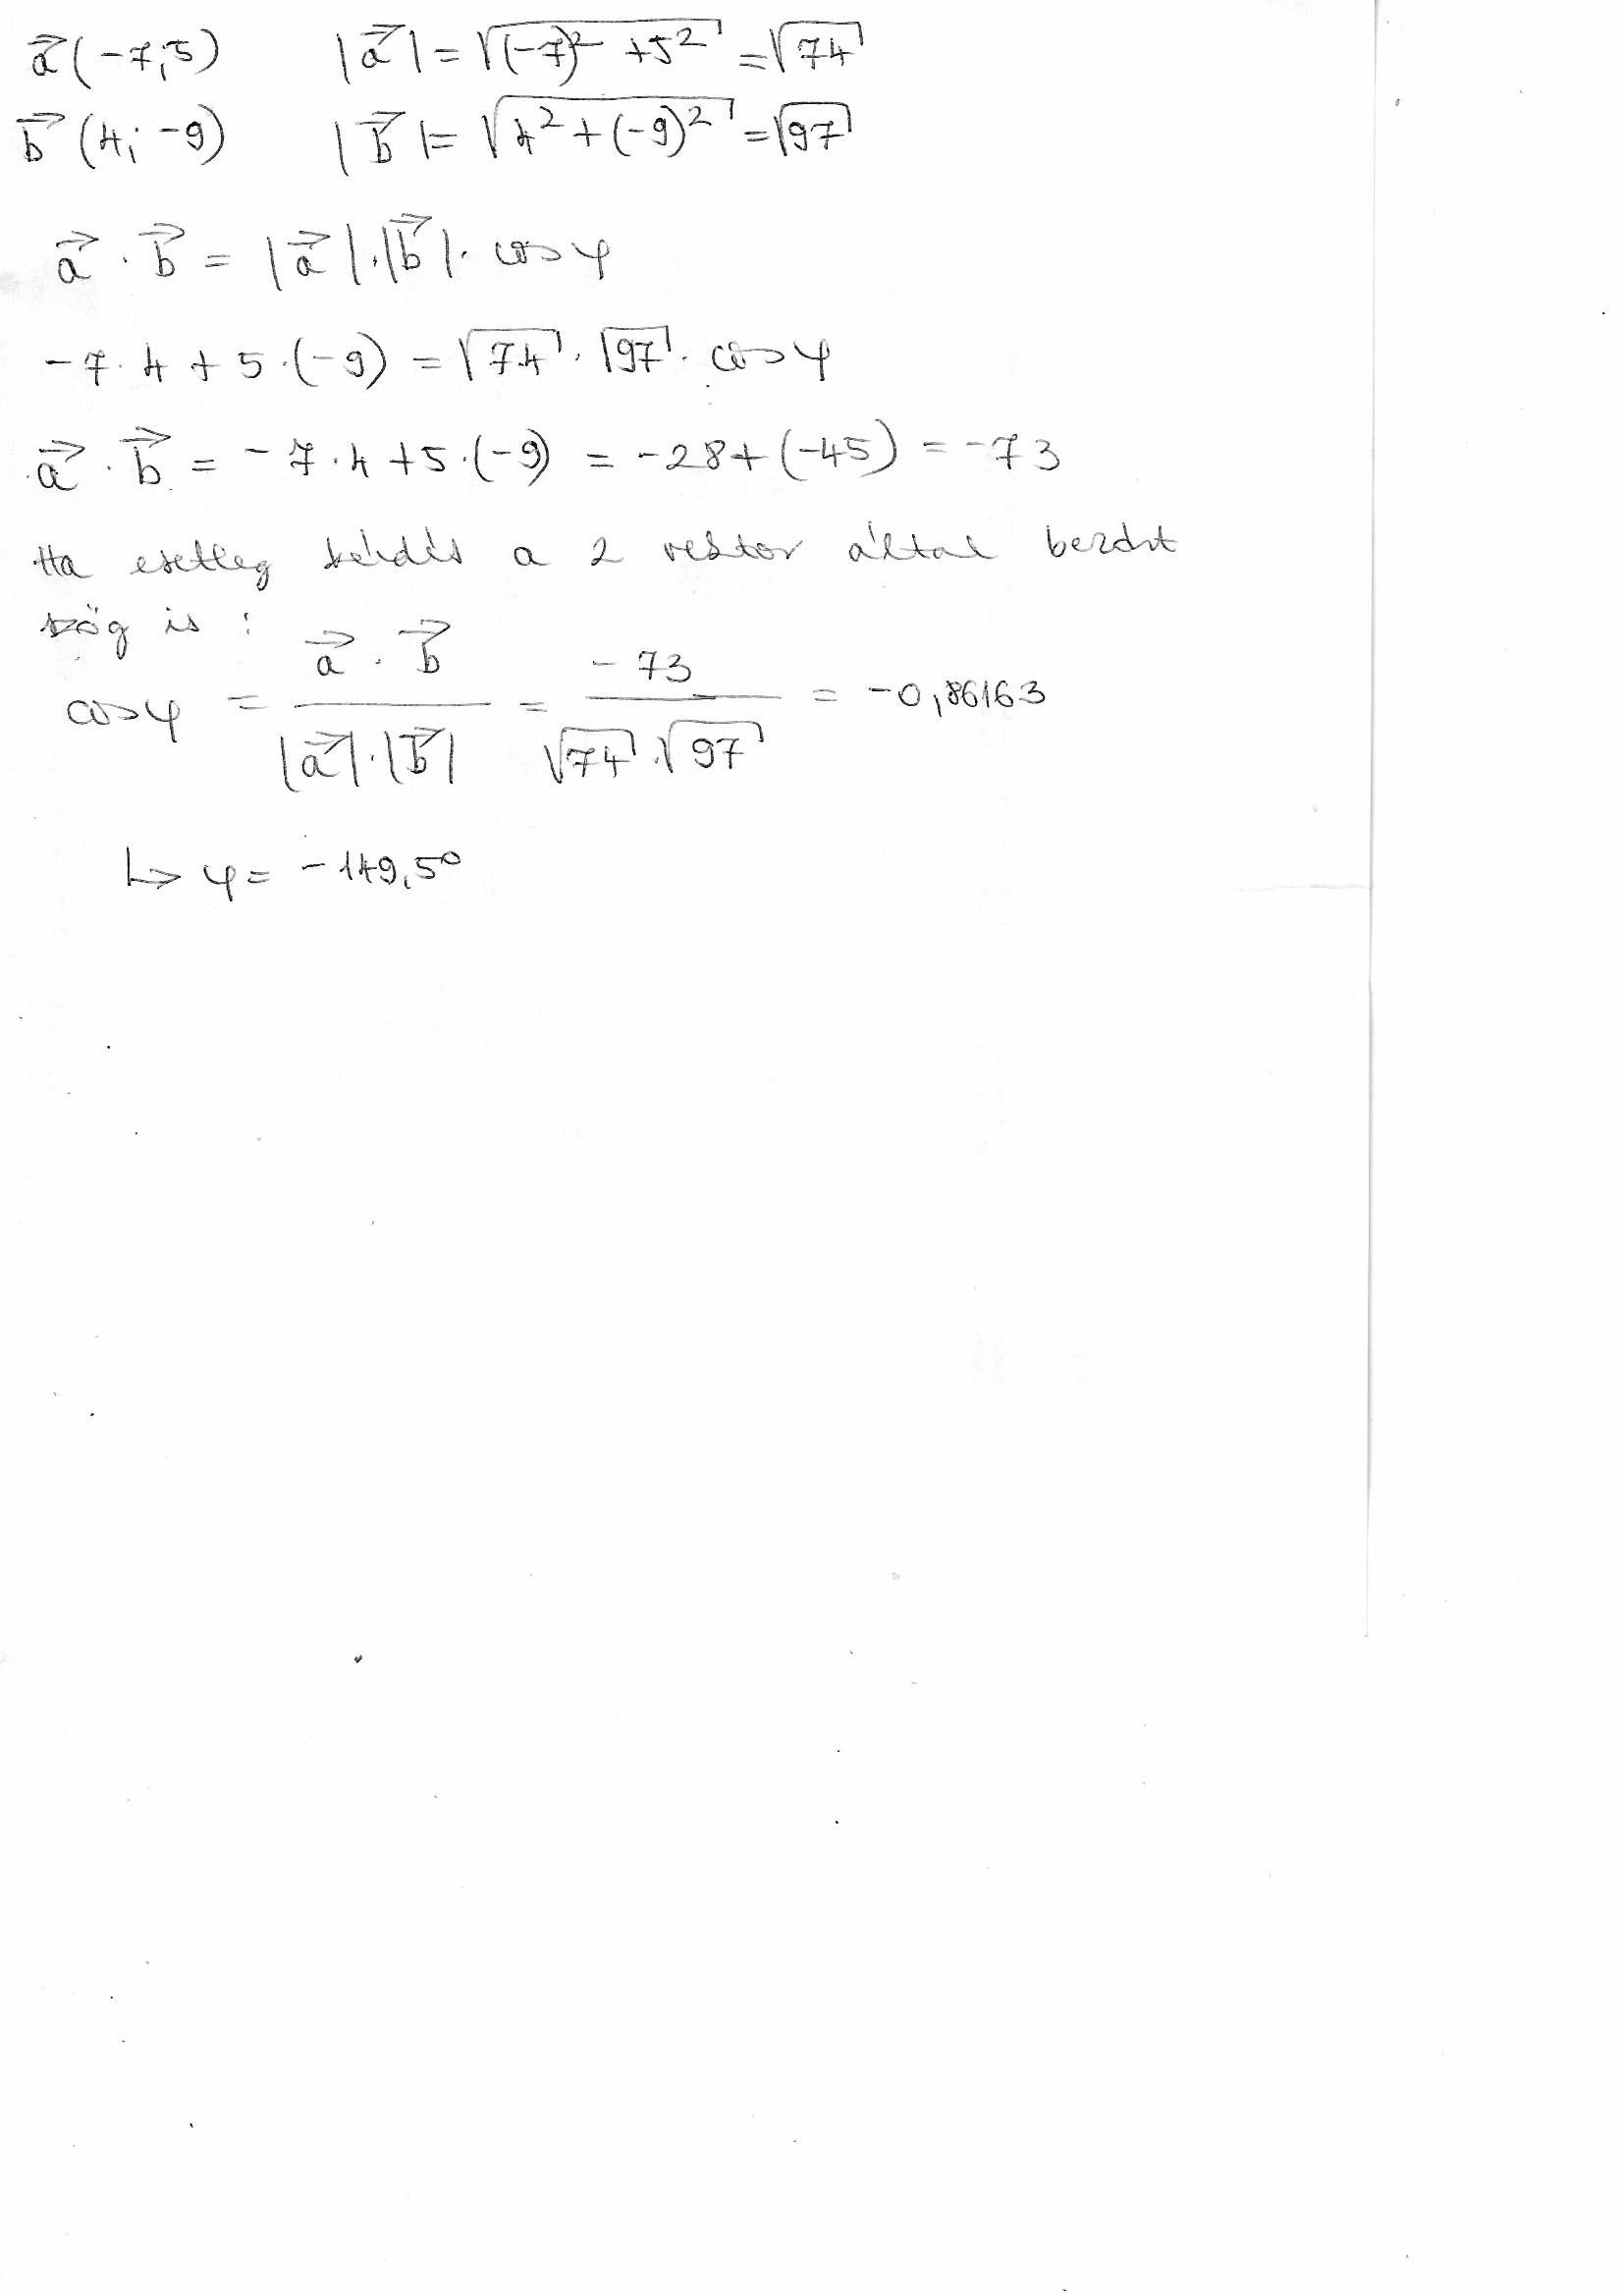 a⃗(-7;5) |a⃗| = √((-7)² + 5²) = √74
b⃗ (4; -9) |b⃗| = √(4² + (-9)²) = √97
a⃗ · b⃗ = |a⃗|·|b⃗|· cos φ
-7·4 + 5·(-9) = √74 · √97 · cos φ
a⃗ · b⃗ = -7·4 + 5·(-9) = -28 + (-45) = -73
Ha esetleg kérdés a 2 vektor által bezárt
szög is :
cos φ = (a⃗ · b⃗) / (|a⃗|·|b⃗|) = -73 / (√74 · √97) = -0,86163
↳ φ = -149,5°